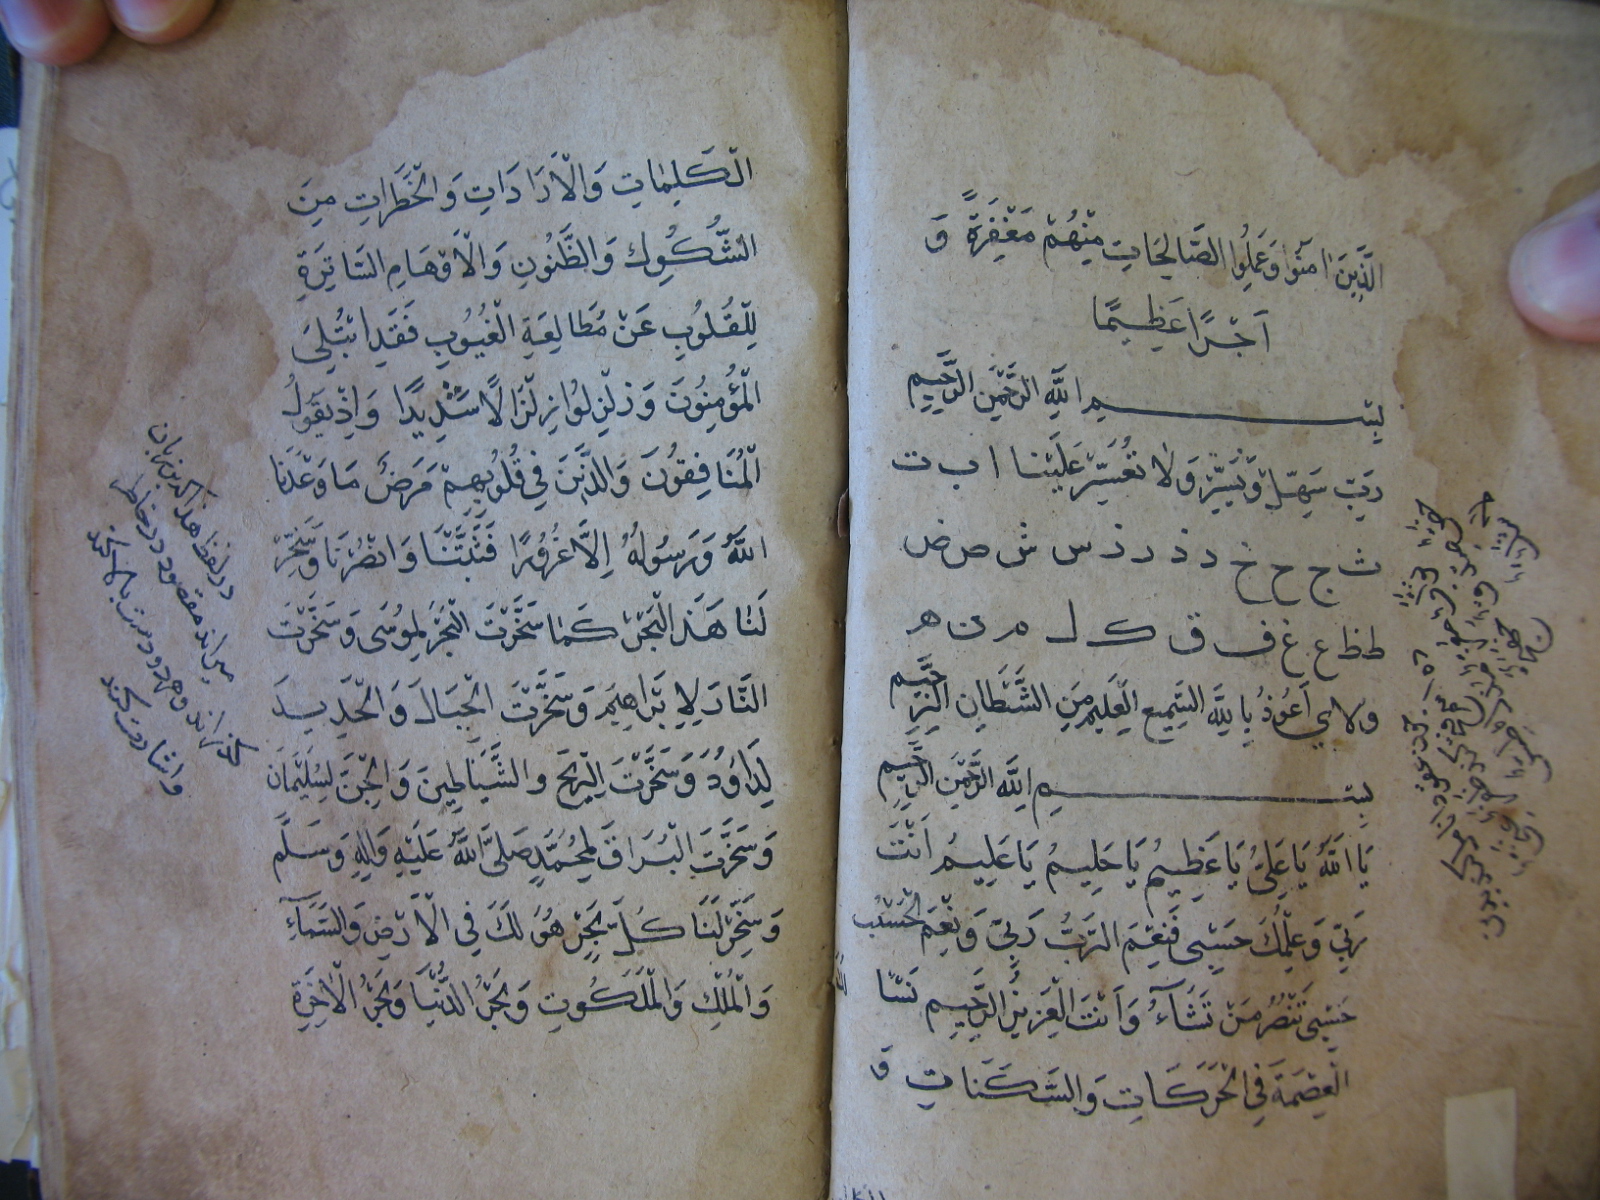 الَّذِينَ اٰمَنُوا وَعَمِلُوا الصَّالِحَاتِ مِنْهُمْ مَغْفِرَةً وَ
اَجْرًا عَظِيمًا
بِسْمِ اللَّهِ الرَّحْمٰنِ الرَّحِيمِ
رَبِّ سَهِّلْ وَيَسِّرْ وَلَا تُعَسِّرْ عَلَيْنَا ا ب ت
ث ج ح خ د ذ ر ز س ش ص ض
ط ظ ع غ ف ق ك ل م ن ه
و لا ي اَعُوذُ بِاللَّهِ السَّمِيعِ الْعَلِيمِ مِنَ الشَّيْطَانِ الرَّجِيمِ
بِسْمِ اللَّهِ الرَّحْمٰنِ الرَّحِيمِ
يَا اَللَّهُ يَا عَلِيُّ يَا عَظِيمُ يَا حَلِيمُ يَا عَلِيمُ اَنْتَ
رَبِّي وَعِلْمُكَ حَسْبِي فَنِعْمَ الرَّبُّ رَبِّي وَنِعْمَ الْحَسْبُ
حَسْبِي تَنْصُرُ مَنْ تَشَاءُ وَاَنْتَ الْعَزِيزُ الرَّحِيمُ نَسْأَ
الْعِصْمَةَ فِي الْحَرَكَاتِ وَالسَّكَنَاتِ وَ
الْكَلِمَاتِ وَالْاَرَادَاتِ وَالْخَطَرَاتِ مِنَ
الشُّكُوكِ وَالظُّنُونِ وَالْاَوْهَامِ السَّاتِرَةِ
لِلْقُلُوبِ عَنْ مُطَالِعَةِ الْغُيُوبِ فَقَدِ ابْتُلِيَ
الْمُؤْمِنُونَ وَزُلْزِلُوا زِلْزَالًا شَدِيدًا وَاِذْ يَقُولُ
الْمُنَافِقُونَ وَالَّذِينَ فِي قُلُوبِهِمْ مَرَضٌ مَا وَعَدَنَا
اللَّهُ وَرَسُولُهُ اِلَّا غُرُورًا فَثَبِّتْنَا وَانْصُرْنَا وَسَخِّرْ
لَنَا هَذَا الْبَحْرَ كَمَا سَخَّرْتَ الْبَحْرَ لِمُوسَى وَسَخَّرْتَ
النَّارَ لِاِبْرَاهِيمَ وَسَخَّرْتَ الْجِبَالَ وَالْحَدِيدَ
لِدَاوُدَ وَسَخَّرْتَ الرِّيْحَ وَالشَّيَاطِينَ وَالْجِنَّ لِسُلَيْمَانَ
وَسَخَّرْتَ الْبُرَاقَ لِمُحَمَّدٍ صَلَّى اللَّهُ عَلَيْهِ وَاٰلِهِ وَسَلَّمَ
وَسَخِّرْ لَنَا كُلَّ بَحْرٍ هُوَ لَكَ فِي الْاَرْضِ وَالسَّمَاءِ
وَالْمُلْكِ وَالْمَلَكُوتِ وَبَحْرَ الدُّنْيَا وَبَحْرَ الْاٰخِرَةِ
در لفظ هذا